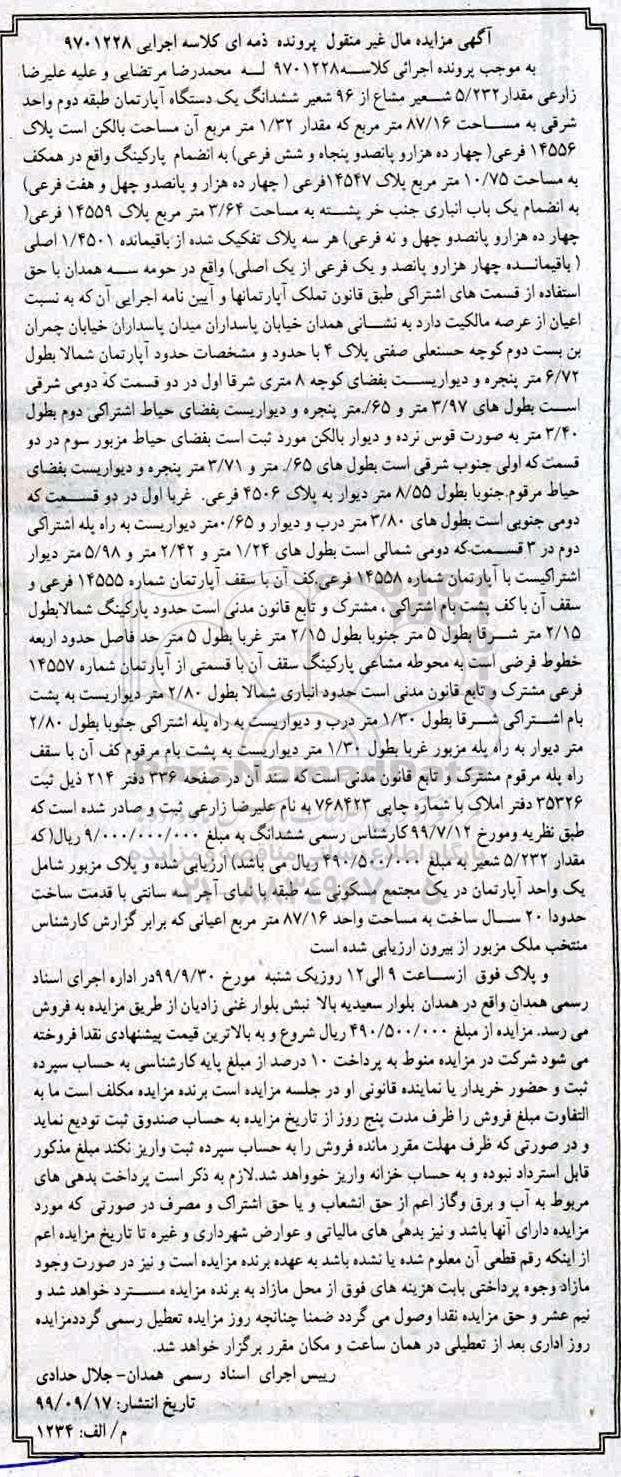 آگهی مزایده مال غیر منقول پرونده ذمه ای کلاسه اجرایی ۹۷۰۱۲۲۸
به موجب پرونده اجرائی کلاسه ۹۷۰۱۲۲۸ له محمدرضا مرتضایی و علیه علیرضا
زارعی مقدار ۵/۲۳۲ شعیر مشاع از ۹۶ شعیر ششدانگ یک دستگاه آپارتمان طبقه دوم واحد
شرقی به مساحت ۸۷/۱۶ متر مربع که مقدار ۱/۳۲ متر مربع آن مساحت بالکن است پلاک
۱۴۵۵۶ فرعی( چهار ده هزارو پانصدو پنجاه و شش فرعی) به انضمام پارکینگ واقع در همکف
به مساحت ۱۰/۷۵ متر مربع پلاک ۱۴۵۴۷فرعی ( چهار ده هزار و پانصدو چهل و هفت فرعی)
به انضمام یک باب انباری جنب خر پشته به مساحت ۳/۶۴ متر مربع پلاک ۱۴۵۵۹ فرعی(
چهار ده هزارو پانصدو چهل و نه فرعی) هر سه پلاک تفکیک شده از باقیمانده ۱/۴۵۰۱ اصلی
( باقیمانده چهار هزارو پانصد و یک فرعی از یک اصلی) واقع در حومه سه همدان با حق
استفاده از قسمت های اشتراکی طبق قانون تملک آپارتمانها و آیین نامه اجرایی آن که به نسبت
اعیان از عرصه مالکیت دارد به نشانی همدان خیابان پاسداران میدان پاسداران خیابان چمران
بن بست دوم کوچه حسنعلی صفتی پلاک ۴ با حدود و مشخصات حدود آپارتمان شمالا بطول
۶/۷۲ متر پنجره و دیواریست بفضای کوچه ۸ متری شرقا اول در دو قسمت که دومی شرقی
است بطول های ۳/۹۷ متر و ۶۵/.متر پنجره و دیواریست بفضای حیاط اشتراکی دوم بطول
۳/۴۰ متر به صورت قوس نرده و دیوار بالکن مورد ثبت است بفضای حیاط مزبور سوم در دو
قسمت که اولی جنوب شرقی است بطول های ۶۵/. متر و ۳/۷۱ متر پنجره و دیواریست بفضای
حیاط مرقوم.جنوبا بطول ۸/۵۵ متر دیوار به پلاک ۴۵۰۶ فرعی. غربا اول در دو قسمت که
دومی جنوبی است بطول های ۳/۸۰ متر درب و دیوار و ۰/۶۵متر دیواریست به راه پله اشتراکی
دوم در ۳ قسمت که دومی شمالی است بطول های ۱/۲۴ متر و ۲/۴۲ متر و ۵/۹۸ متر دیوار
اشتراکیست با آپارتمان شماره ۱۴۵۵۸ فرعی.کف آن با سقف آپارتمان شماره ۱۴۵۵۵ فرعی و
سقف آن با کف پشت بام اشتراکی ، مشترک و تابع قانون مدنی است حدود پارکینگ شمالابطول
۲/۱۵ متر شرقا بطول ۵ متر جنوبا بطول ۲/۱۵ متر غربا بطول ۵ متر حد فاصل حدود اربعه
خطوط فرضی است به محوطه مشاعی پارکینگ سقف آن با قسمتی از آپارتمان شماره ۱۴۵۵۷
فرعی مشترک و تابع قانون مدنی است حدود انباری شمالا بطول ۲/۸۰ متر دیواریست به پشت
بام اشتراکی شرقا بطول ۱/۳۰ متر درب و دیواریست به راه پله اشتراکی جنوبا بطول ۲/۸۰
متر دیوار به راه پله مزبور غربا بطول ۱/۳۰ متر دیواریست به پشت بام مرقوم کف آن با سقف
راه پله مرقوم مشترک و تابع قانون مدنی است که سند آن در صفحه ۳۳۶ دفتر ۲۱۴ ذیل ثبت
۳۵۳۲۶ دفتر املاک با شماره چاپی ۷۶۸۴۲۳ به نام علیرضا زارعی ثبت و صادر شده است که
طبق نظریه ومورخ ۹۹/۷/۱۲ کارشناس رسمی ششدانگ به مبلغ ۹/۰۰۰/۰۰۰/۰۰۰ ریال(که
مقدار ۵/۲۳۲ شعیر به مبلغ ۴۹۰/۵۰۰/۰۰۰ ریال می باشد) ارزیابی شده و پلاک مزبور شامل
یک واحد آپارتمان در یک مجتمع مسکونی سه طبقه با نمای آجر سه سانتی با قدمت ساخت
حدودا ۲۰ سال ساخت به مساحت واحد ۸۷/۱۶ متر مربع اعیانی که برابر گزارش کارشناس
منتخب ملک مزبور از بیرون ارزیابی شده است
و پلاک فوق ازساعت ۹ الی ۱۲ روزیک شنبه مورخ ۹۹/۹/۳۰در اداره اجرای اسناد
رسمی همدان واقع در همدان بلوار سعیدیه بالا نبش بلوار غنی زادیان از طریق مزایده به فروش
می رسد. مزایده از مبلغ ۴۹۰/۵۰۰/۰۰۰ ریال شروع و به بالاترین قیمت پیشنهادی نقدا فروخته
می شود شرکت در مزایده منوط به پرداخت ۱۰ درصد از مبلغ پایه کارشناسی به حساب سپرده
ثبت و حضور خریدار یا نماینده قانونی او در جلسه مزایده است برنده مزایده مکلف است ما به
التفاوت مبلغ فروش را ظرف مدت پنج روز از تاریخ مزایده به حساب صندوق ثبت تودیع نماید
و در صورتی که ظرف مهلت مقرر مانده فروش را به حساب سپرده ثبت واریز نکند مبلغ مذکور
قابل استرداد نبوده و به حساب خزانه واریز خوواهد شد.لازم به ذکر است پرداخت بدهی های
مربوط به آب و برق وگاز اعم از حق انشعاب و یا حق اشتراک و مصرف در صورتی که مورد
مزایده دارای آنها باشد و نیز بدهی های مالیاتی و عوارض شهرداری و غیره تا تاریخ مزایده اعم
از اینکه رقم قطعی آن معلوم شده یا نشده باشد به عهده برنده مزایده است و نیز در صورت وجود
مازاد وجوه پرداختی بابت هزینه های فوق از محل مازاد به برنده مزایده مسترد خواهد شد و
نیم عشر و حق مزایده نقدا وصول می گردد ضمنا چنانچه روز مزایده تعطیل رسمی گرددمزایده
روز اداری بعد از تعطیلی در همان ساعت و مکان مقرر برگزار خواهد شد.
رییس اجرای اسناد رسمی همدان- جلال حدادی
تاریخ انتشار: ۹۹/۰۹/۱۷
م/ الف: ۱۲۳۴